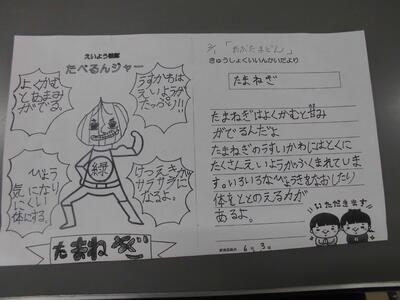 えいよう戦隊
たべるんジャー
よくかむ
とあまみ
がでる。
うすかわは
えいようが
たっぷり!!
緑
びょう
気になり
にくい
体にする。
けつえきが
サラサラに
なるよ。
たまねぎ
「おかたまどん」
きゅうしょくいいんかいだより
たまねぎ
たまねぎはよくかむと甘み
がでるんだよ
たまねぎのうすいかわにはとくに
たくさんえいようがふくまれていま
す。いろいろなびょうきをなおしたり
体をととのえる力が
あるよ。
いただきます
6月3日